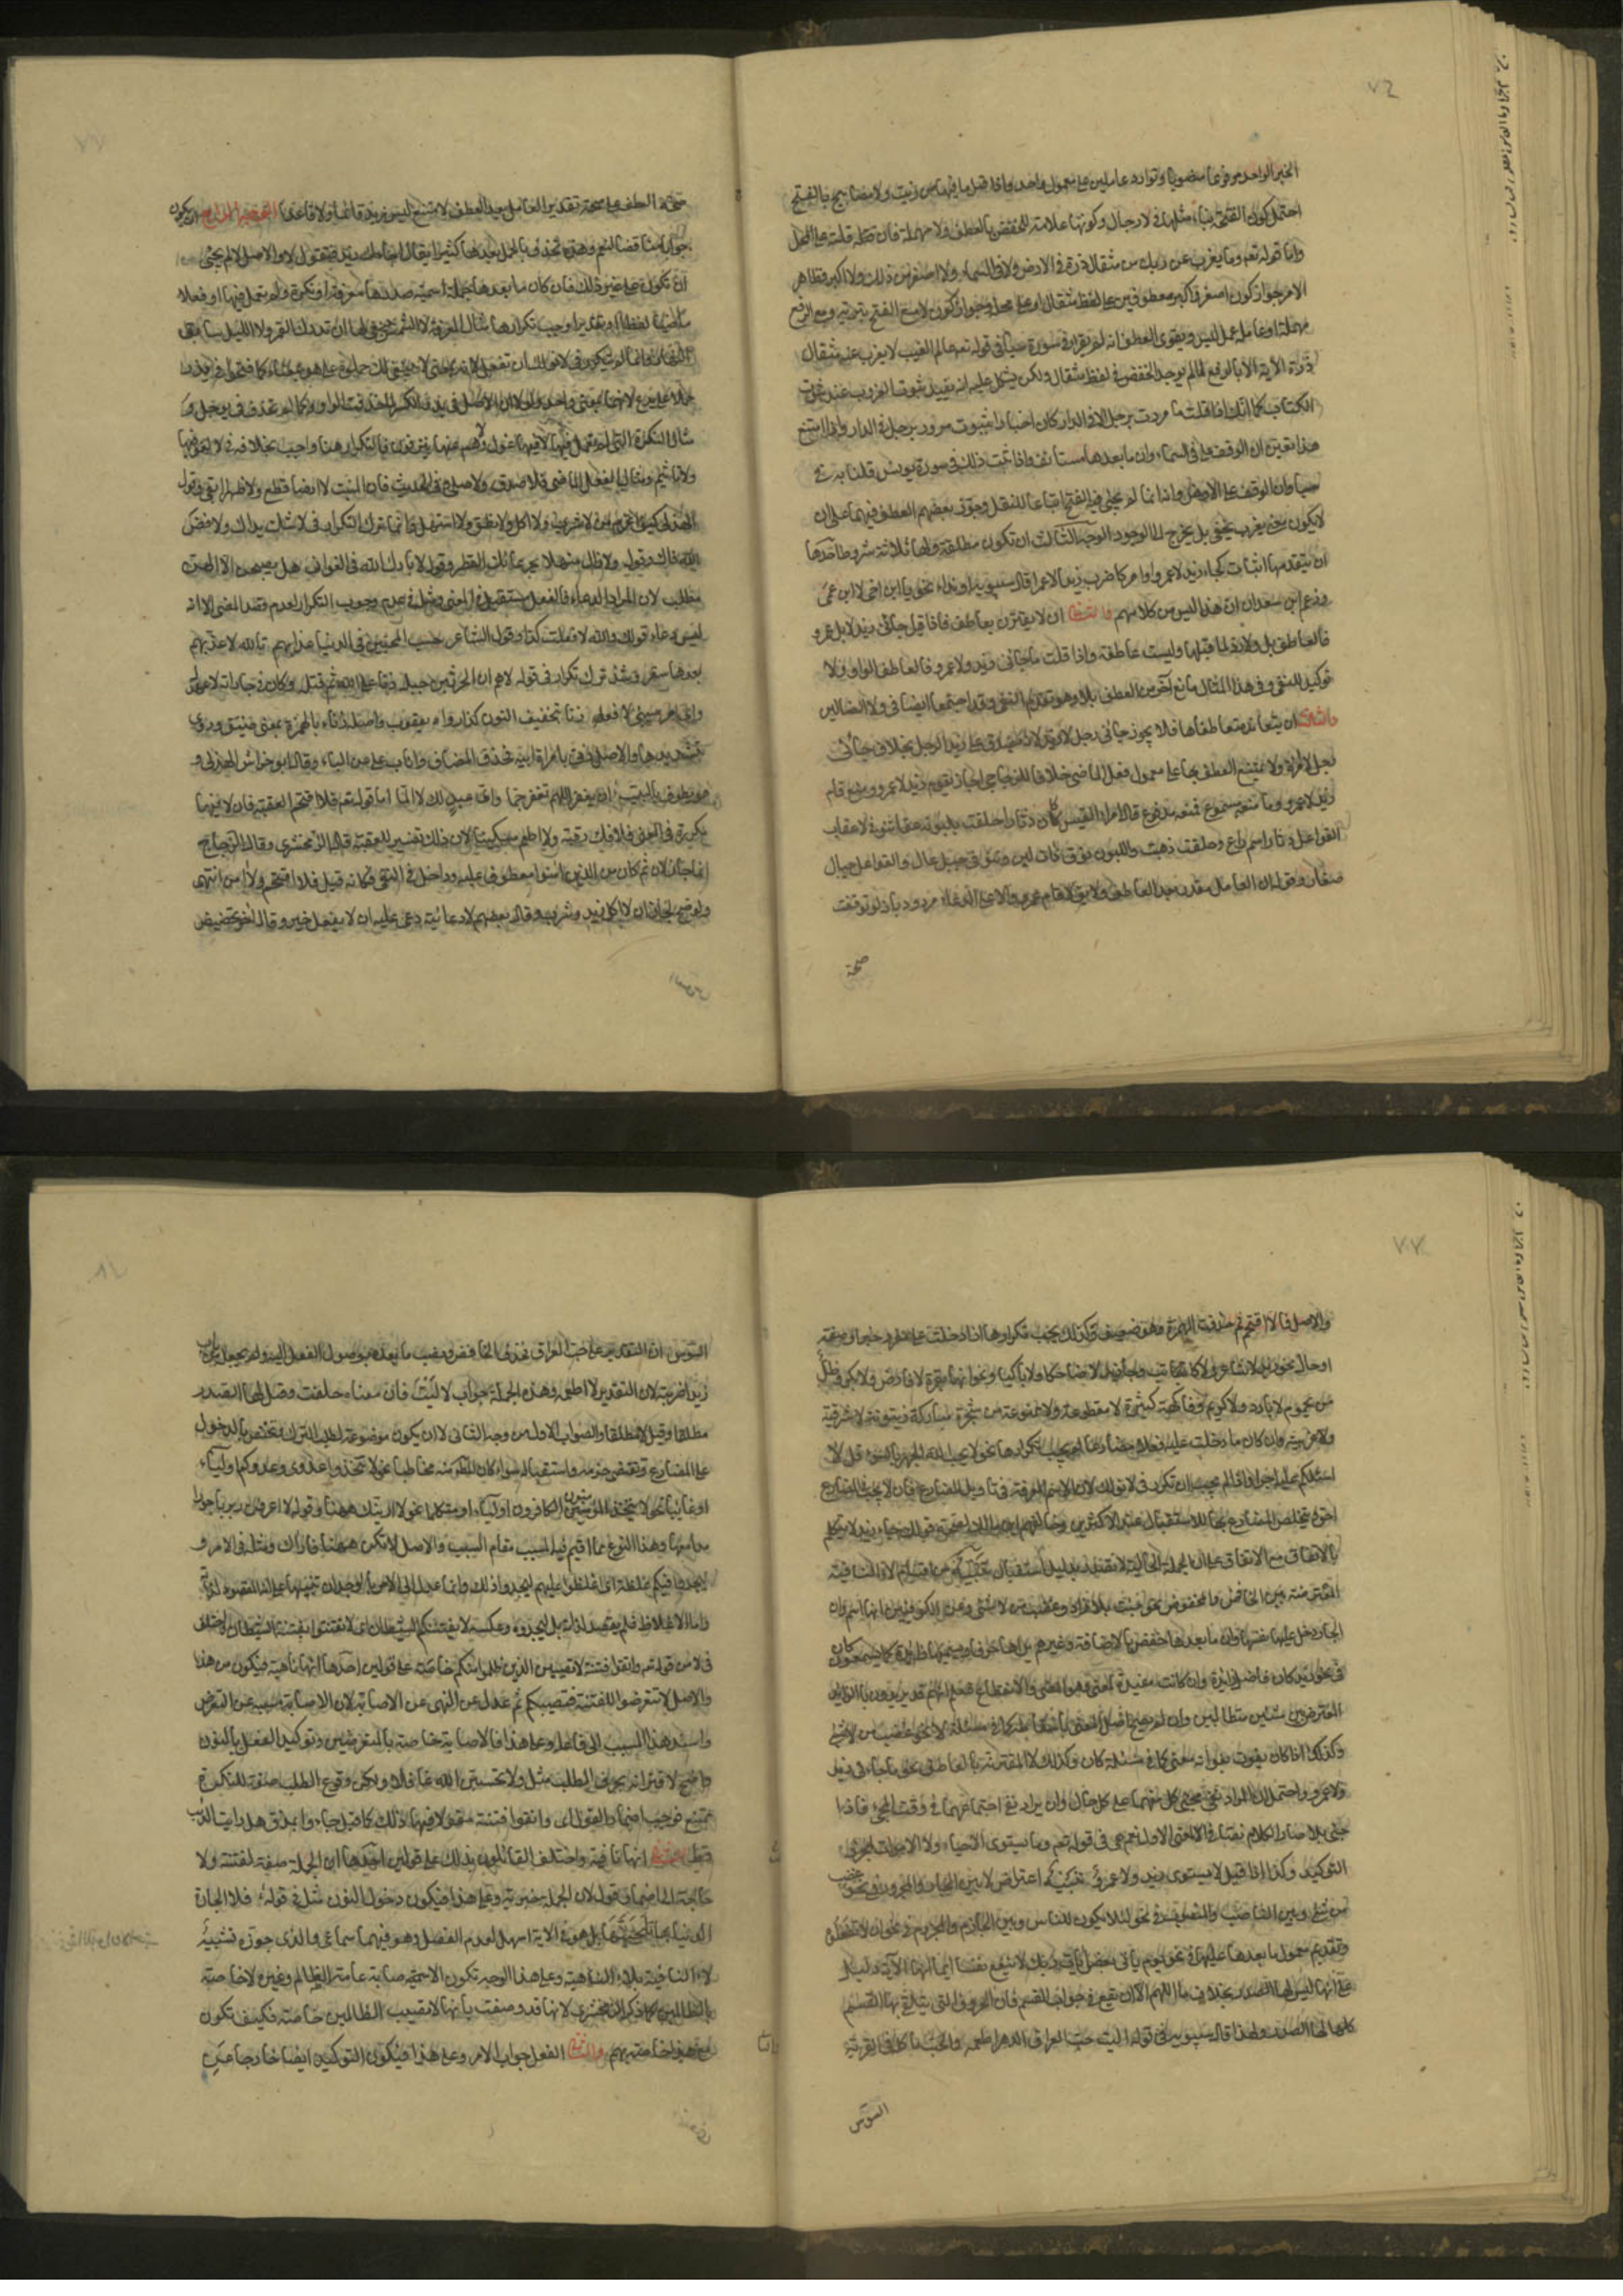 الخبر الواحد مرفوعا منصوبا وتوارد عاملين على معمول واحد واذا قيل ما فيها من زيت ولا مصابيح بالفتح
احتمل كون الفتحة بناء مثلها في لا رجال وكونها علامة للخفض بالعطف ولا مهملة فان قلته قلته على المحل
واما قوله تعم وما يعزب عن ربك من مثقال ذرة في الارض ولا في السماء ولا اصغر من ذلك ولا اكبر فظاهر
الامر جواز كون اصغر واكبر معطوفين على لفظ مثقال او على محله وجواز كون لا مع الفتح تبرئة ومع الرفع
مهملة او عاملة عمل ليس ويقوى العطف انه لم يقرا في سورة سبا في قوله تعم عالم الغيب لا يعزب عنه مثقال
ذرة الآية الا بالرفع لما لم يوجد الخفض في لفظ مثقال ولكن يشكل عليه انه يفيد ثبوت العزوب عند ثبوت
الكتاب كما انك اذا قلت ما مررت برجل الا في الدار كان اخبارا بثبوت مرورك برجل في الدار واذا امتنع
هذا تعين ان الوقف على في السماء وان ما بعدها مستانف واذا ثبت ذلك في سورة يونس قلنا به في
سبا وان الوقف على الارض وانه انما لم يجئ فيه الفتح اتباعا للنقل وجوز بعضهم العطف فيهما على ان
لا يكون معنى يعزب يخفى بل يخرج الى الوجود الوجه الثالث ان تكون عاطفة ولها ثلاثة شروط احدها
ان يتقدمها اثبات كجاء زيد لا عمرو او امر كاضرب زيدا لا عمرا قال سيبويه او نداء نحو يا ابن اخي لا ابن عمي
وزعم ابن سعدان ان هذا ليس من كلامهم والثاني ان لا يقترن بعاطف فاذا قيل جاءني زيد لا بل عمرو
فالعاطف بل ولا رد لما قبلها وليست عاطفة واذا قلت ما جاءني زيد ولا عمرو فالعاطف الواو ولا
توكيد للنفي وفي هذا المثال مانع آخر من العطف بلا وهو تقدم النفي وقد اجتمعا ايضا في ولا الضالين
والثالث ان يتعاند متعاطفاها فلا يجوز جاءني رجل لا زيد لانه يصدق على زيد الرجل بخلاف جاءني
رجل لا امراة ولا يمتنع العطف بها على معمول فعل الماضي خلافا للزجاجي اجاز يقوم زيد لا عمرو ومنع قام
زيد لا عمرو وما منعه مسموع فمنعه مدفوع قال امرء القيس كان دثارا حلقت بلبونه عقاب تنوفى لا عقاب
القواعل دثار اسم راع وحلقت ذهبت واللبون نوق ذات لبن وتنوفى جبل عال والقواعل جبال
صغار وقوله ان العامل مقدر بعد العاطف ولا يق لا قام عمرو الا على الدعاء مردود بانه لو توقفت
صحة
صحة العطف على صحة تقدير العامل بعد العطف لامتنع ليس زيد قائما ولا قاعدا الوجه الرابع ان يكون
جوابا مناقضا لنعم وهذه تحذف بالجمل بعدها كثيرا يقال اجاءك زيد فتقول لا والاصل لا لم يجئ
ان تكون على غير ذلك فان كان ما بعدها جملة اسمية صدرها معرفة او نكرة ولم تعمل فيها او فعلا
ماضيا لفظا او تقديرا وجب تكرارها مثال المعرفة لا الشمس ينبغي لها ان تدرك القمر ولا الليل سابق
النهار وانما لم تتكرر في لا نولك ان تفعل لانه بمعنى لا ينبغي لك
مثال النكرة التي لم تعمل فيها لا فيها غول ولا هم عنها ينزفون فالتكرار هنا واجب بخلافه في لا لغو فيها
ولا تاثيم ومثال الفعل الماضي فلا صدق ولا صلى وفي الحديث فان المنبت لا ارضا قطع ولا ظهرا ابقى وقول
الهذلي كيف اغرم من لا شرب ولا اكل ولا نطق ولا استهل وانما ترك التكرار في لا شلت يداك ولا فض
الله فاك وقوله ولا زال منهلا بجرعائك القطر وقوله لا بارك الله في الغواني هل يصبحن الا لهن
مطلب لان المراد الدعاء فالفعل مستقبل في المعنى ومثله في عدم وجوب التكرار لعدم قصد المضي الا انه
ليس دعاء قولك والله لا فعلت كذا وقول الشاعر حسب المحبين في الدنيا عذابهم تالله لا عذبتهم
بعدها سقر وشذ ترك تكرار في قوله لاهم ان الحرث بن جبلة زنا على ابيه ثم قتله وكان في جاراته لا عهد له
واي امر سيئ لا فعله زنا بتخفيف النون كذا رواه يعقوب واصله زناء بالهمزة بمعنى ضيق وروي
بتشديدها والاصل زنى بامراة ابيه فحذف المضاف واناب على عن الباء وقال ابو خراش الهذلي و
هو يطوف بالبيت ان تغفر اللهم تغفر جما واي عبد لك لا الما اما قوله تعم فلا اقتحم العقبة فان لا فيها
مكررة في المعنى فلا فك رقبة ولا اطعم مسكينا لان ذلك تفسير للعقبة قاله الزمخشري وقال الزجاج
انما جاز لان ثم كان من الذين آمنوا معطوف عليه وداخل في النفي فكانه قيل فلا اقتحم ولا آمن انتهى
ولو صح لجاز لا اكل زيد وشرب وقال بعضهم لا دعائية دعى عليه ان لا يفعل خيرا وقال آخر تحضيض
والاصل فالا اقتحم ثم حذفت الهمزة وهو ضعيف وكذلك يجب تكرارها اذا دخلت على مفرد خبر او صفة
او حال نحو زيد لا شاعر ولا كاتب وجاء زيد لا ضاحكا ولا باكيا ونحو انها بقرة لا فارض ولا بكر وظل
من يحموم لا بارد ولا كريم وفاكهة كثيرة لا مقطوعة ولا ممنوعة من شجرة مباركة زيتونة لا شرقية
ولا غربية وان كان ما دخلت عليه فعلا مضارعا لم يجب تكرارها نحو لا يحب الله الجهر بالسوء قل لا
اسئلكم عليه اجرا واذا لم يجب ان تكرر في لا نولك لان الاسم المعرفة في تاويل المضارع فان لا يجب في المضارع
احق ويتخلص المضارع بها للاستقبال عند الاكثرين وخالفهم ابن مالك لصحة قولك جاء زيد لا يتكلم
بالاتفاق مع الاتفاق على ان الجملة الحالية لا تصدر بدليل استقبال تنبيه من اقسام لا النافية
المعترضة بين الخافض والمخفوض نحو جئت بلا زاد وغضبت من لا شئ وعن الكوفيين انها اسم وان
الجار دخل عليها نفسها وان ما بعدها خفض بالاضافة وغيرهم يراها حرفا ويسميها زائدة كما يسمون كان
في نحو زيد كان فاضل زائدة وان كانت مفيدة لمعنى وهو المضي والانقطاع فعلم انهم قد يريدون بالزائد
المعترض بين شيئين متطالبين وان لم يصح اصل المعنى باسقاطه كما في مسئلة لا في نحو غضبت من لا شئ
وكذلك اذا كان يفوت بفواته معنى كما في مسئلة كان وكذلك لا المقترنة بالعاطف في نحو ما جاءني زيد
ولا عمرو واحتمل ان المراد نفي مجئ كل منهما على كل حال وان يراد نفي اجتماعهما في وقت المجئ فاذا
جئ بلا صار الكلام نصا في المعنى الاول نعم هي في قوله تعم وما يستوى الاحياء ولا الاموات لمجرد
التوكيد وكذا اذا قيل لا يستوى زيد ولا عمرو تنبيه اعتراض لا بين الجار والمجرور في نحو غضبت
من شئ وبين الناصب والمنصوب في نحو لئلا يكون للناس وبين الجازم والمجزوم في نحو ان لا تفعلوه
وتقديم معمول ما بعدها عليها في نحو يوم ياتي بعض آيات ربك لا ينفع نفسا ايمانها الآية دليل
على انها ليس لها الصدر بخلاف ما اللهم الا ان تقع في جواب القسم فان الحروف التي يتلقى بها القسم
كلها لها الصدر ولهذا قال سيبويه في قوله آليت حب العراق الدهر اطعمه والحب ياكله في القرية
السوس
السوس ان التقدير على حب العراق فحذف الخافض ونصب ما بعده بوصول الفعل اليه ولم يجعل من باب
زيدا ضربته لان التقدير لا اطعمه وهذه الجملة جواب لآليت فان معناه حلفت وقيل لها الصدر
مطلقا وقيل لا مطلقا والصواب الاول من وجه الثاني لا ان يكون موضوعة لطلب الترك وتختص بالدخول
على المضارع وتقتضي جزمه واستقباله سواء كان المطلوب منه مخاطبا نحو لا تتخذوا عدوى وعدوكم اولياء
او غائبا نحو لا يتخذ المؤمنون الكافرون اولياء او متكلما نحو لا ارينك ههنا وقوله لا اعرفن ربربا حورا
مدامعها وهذا النوع مما اقيم فيه المسبب مقام السبب والاصل لا تكن ههنا فاراك ومثله في الامر و
ليجدوا فيكم غلظة اى اغلظوا عليهم ليجدوا ذلك وانما عدل الى الامر بالوجدان تنبيها على انه المقصود لذاته
واما الاغلاظ فلم يقصد لذاته بل ليجدوه وعكسه لا يفتننكم الشيطان اى لا تفتتنوا بفتنة الشيطان واختلف
في لا من قوله تعم واتقوا فتنة لا تصيبن الذين ظلموا منكم خاصة على قولين احدها انها ناهية فيكون من هذا
والاصل لا تتعرضوا للفتنة فتصيبكم ثم عدل عن النهي عن التعرض الى النهي عن الاصابة لان الاصابة مسببة عن التعرض
واسند هذا المسبب الى فاعله وعلى هذا فالاصابة خاصة بالمتعرضين وتوكيد الفعل بالنون
واضح لاقترانه بحرف الطلب مثل ولا تحسبن الله غافلا ولكن وقوع الطلب صفة للنكرة
ممتنع فوجب اضمار القول اى واتقوا فتنة مقولا فيها ذلك كما قيل جاءوا بمذق هل رايت الذئب
قط والثاني انها نافية واختلف القائلون بذلك على قولين احدها ان الجملة صفة لفتنة ولا
حاجة الى اضمار قول لان الجملة خبرية وعلى هذا فيكون دخول النون مثله في قوله فلا الجارة
الدنيا بها تلحينها بل هو في الآية اسهل لعدم الفصل وهو فيهما سماعي والذي جوزه تشبيه
لا النافية بلا الناهية وعلى هذا الوجه تكون الاصابة عامة للظالم وغيره لا خاصة
بالظالمين كما ذكر الزمخشري لانها قد وصفت بانها لا تصيب الظالمين خاصة فكيف تكون
مع هذا خاصة بهم والثاني الفعل جواب الامر وعلى هذا فيكون التوكيد ايضا خارجا عن